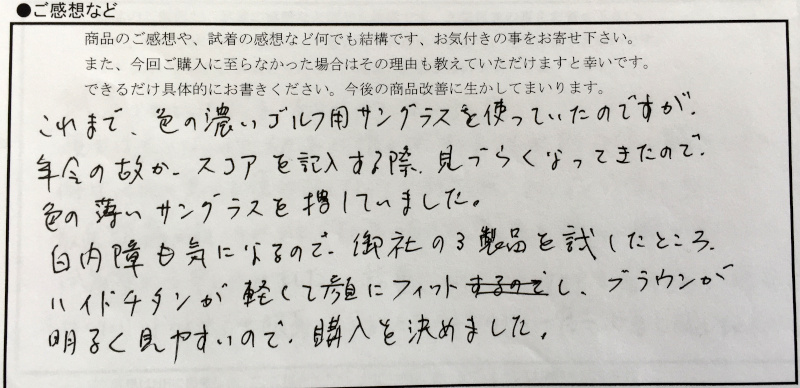 ●ご感想など
商品のご感想や、試着の感想など何でも結構です、お気付きの事をお寄せ下さい。
また、今回ご購入に至らなかった場合はその理由も教えていただけますと幸いです。
できるだけ具体的にお書きください。今後の商品改善に生かしてまいります。
これまで、色の濃いゴルフ用サングラスを使っていたのですが、
年令の故か、スコアを記入する際、見づらくなってきたので、
色の薄いサングラスを捜していました。
白内障も気になるので、御社の3製品を試したところ、
ハイドチタンが軽くて顔にフィットするのでし、ブラウンが
明るく見やすいので、購入を決めました。